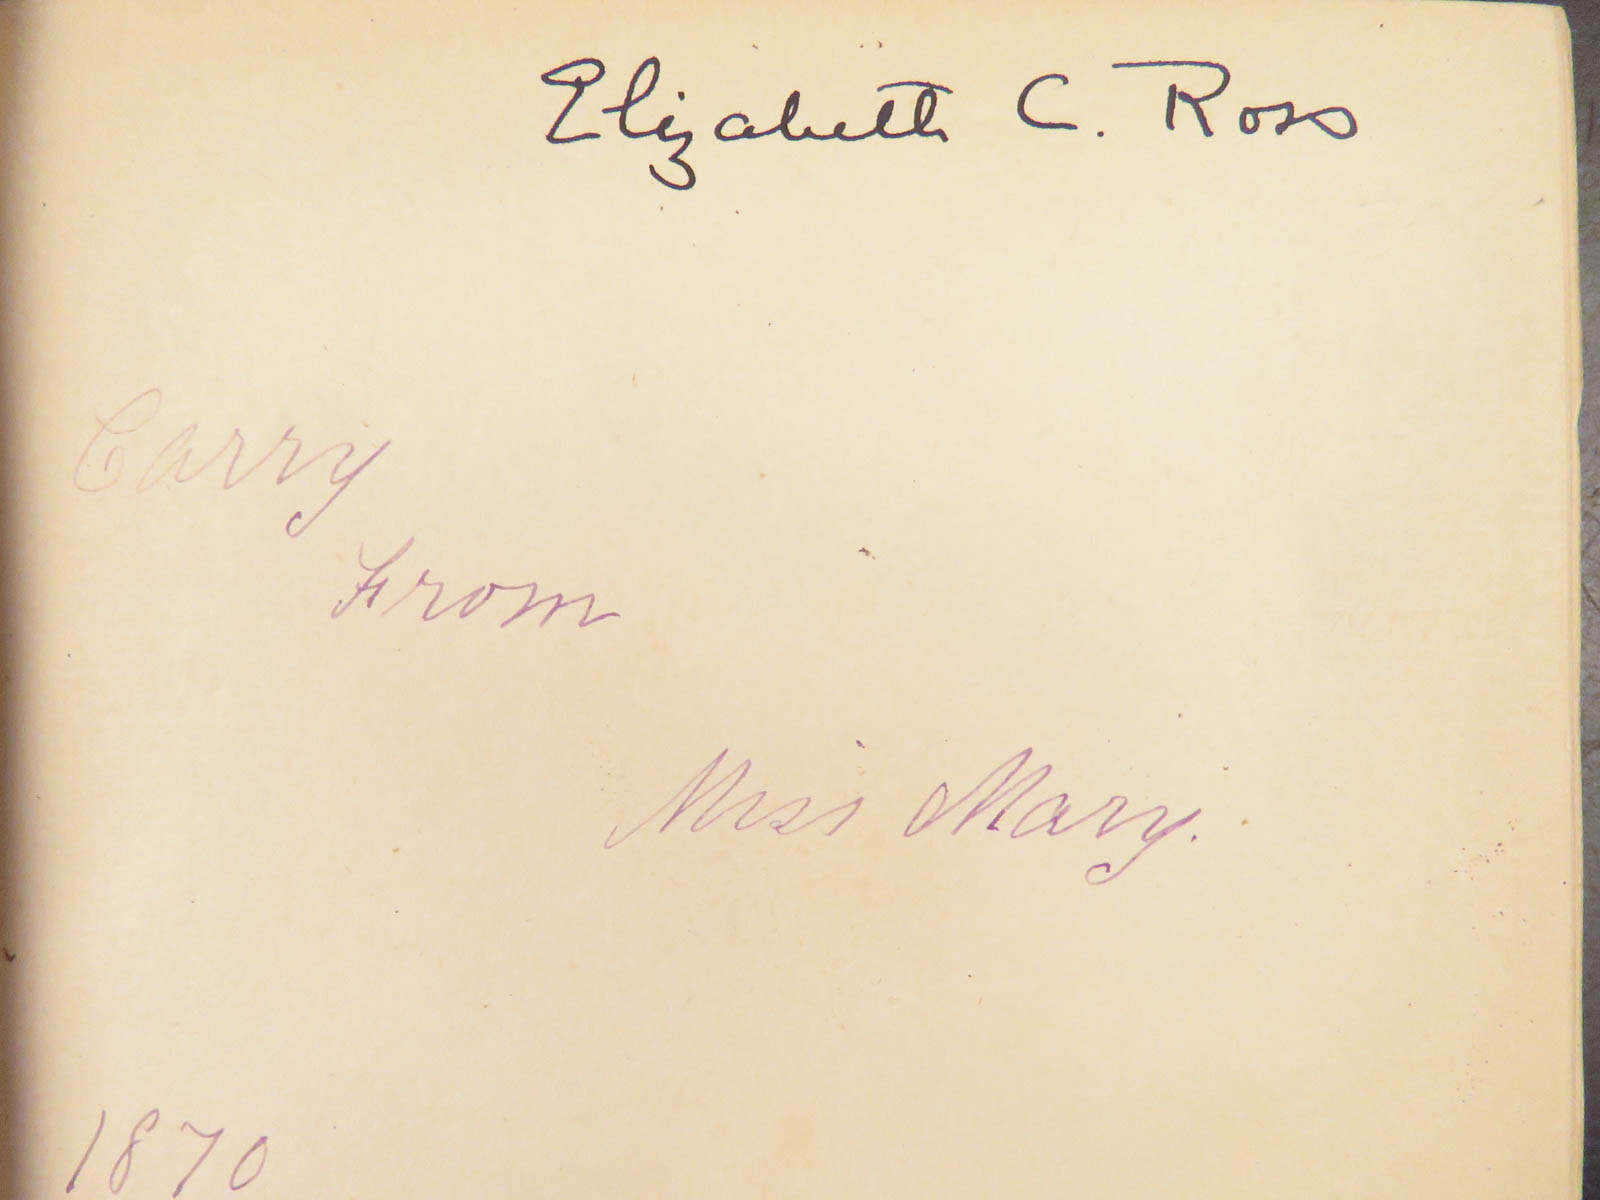 Elizabeth C. Ross
Carry
From
Miss Mary.
1870